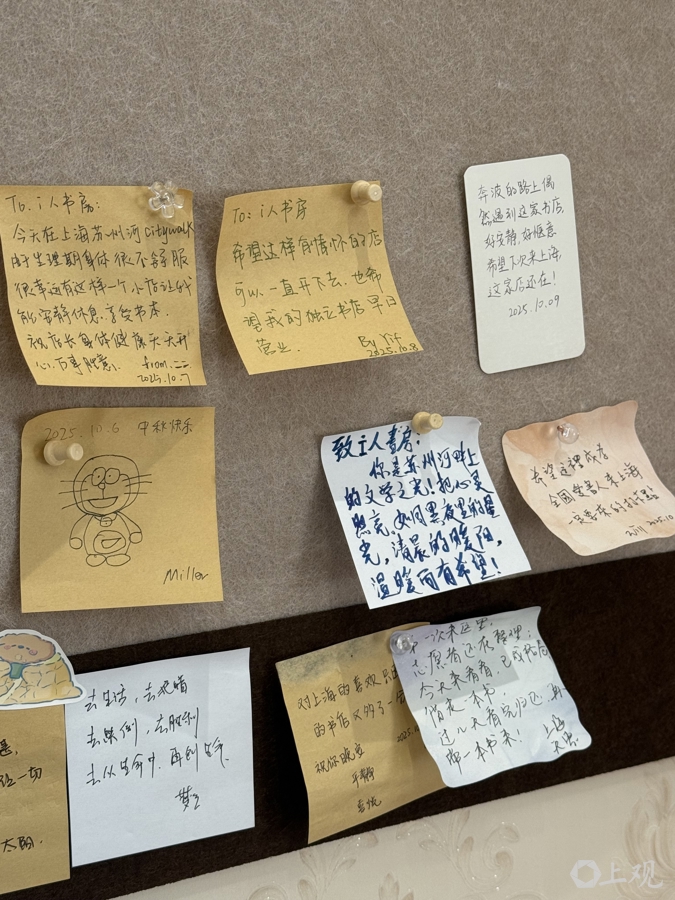 To: i人书房:
今天在上海苏州河citywalk
由于生理期身体很不舒服
很幸运有这样一个小店让我
能安静休息,享受书本.
祝店长身体健康天天开
心,万事胜意.
from.二二
2025.10.7
To: i人书房
希望这样有情怀的店
可以一直开下去,也希
望我的独立书店早日
营业.
By Yif
2025.10.8
奔波的路上偶
然遇到这家书店,
好安静,好惬意
希望下次来上海,
这家店还在!
2025.10.09
2025.10.6 中秋快乐
Miller
致i人书房:
你是苏州河畔上
的文学之光!把心灵
照亮,如同黑夜里的星
光,清晨的暖阳,
温暖而有希望!
希望这里成为
全国爱书人来上海
一定要来的打卡点
2025.10
去生活,去犯错
去跌倒,去胜利
去从生命中,再创生命.
对上海的喜欢
的书店又多了一
祝你晚安
平静
喜悦
一次来这里,
志愿者还在整理;
今天来看看,已成格局,
借走一本书,
过几天看完归还,再
带一本书来!
一切
太阳.
上观